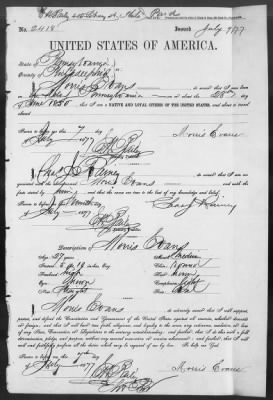 No. 2418 Issued July 9/77
UNITED STATES OF AMERICA.
State of Pennsylvania
County of Philadelphia
I, Morris Evans do swear that I was born
in Pennsylvania on the 28th day
of June 1850, that I am a NATIVE AND LOYAL CITIZEN OF THE UNITED STATES, and about to travel
abroad
Sworn to before me this 7 day
of July 1877 Morris Evans
Notary Public
I, Chas J. Rainey do swear that I am
acquainted with the above named Morris Evans and with the
facts stated by him, and that the same are true to the best of my knowledge and belief.
Sworn to before me this day
of July 1877 Chas J Rainey
Notary Public
Description of Morris Evans
Age: 27 years Mouth: Medium
Stature: 5 ft Eng. Chin:
Forehead: High Hair:
Eyes: Brown Complexion: Light
Nose: Straight Face: Oval
I, Morris Evans do solemnly swear that I will support,
protect, and defend the Constitution and Government of the United States against all enemies, whether domestic
or foreign; and that I will bear true faith, allegiance, and loyalty to the same, any ordinance, resolution, or law
of any State, Convention, or Legislature to the contrary notwithstanding; and further, that I do this with a full
determination, pledge, and purpose, without any mental reservation or evasion whatsoever; and further, that I will
well and faithfully perform all the duties which may be required of me by law. So help me God.
Sworn to before me, this 7th day
of July 1877 Morris Evans